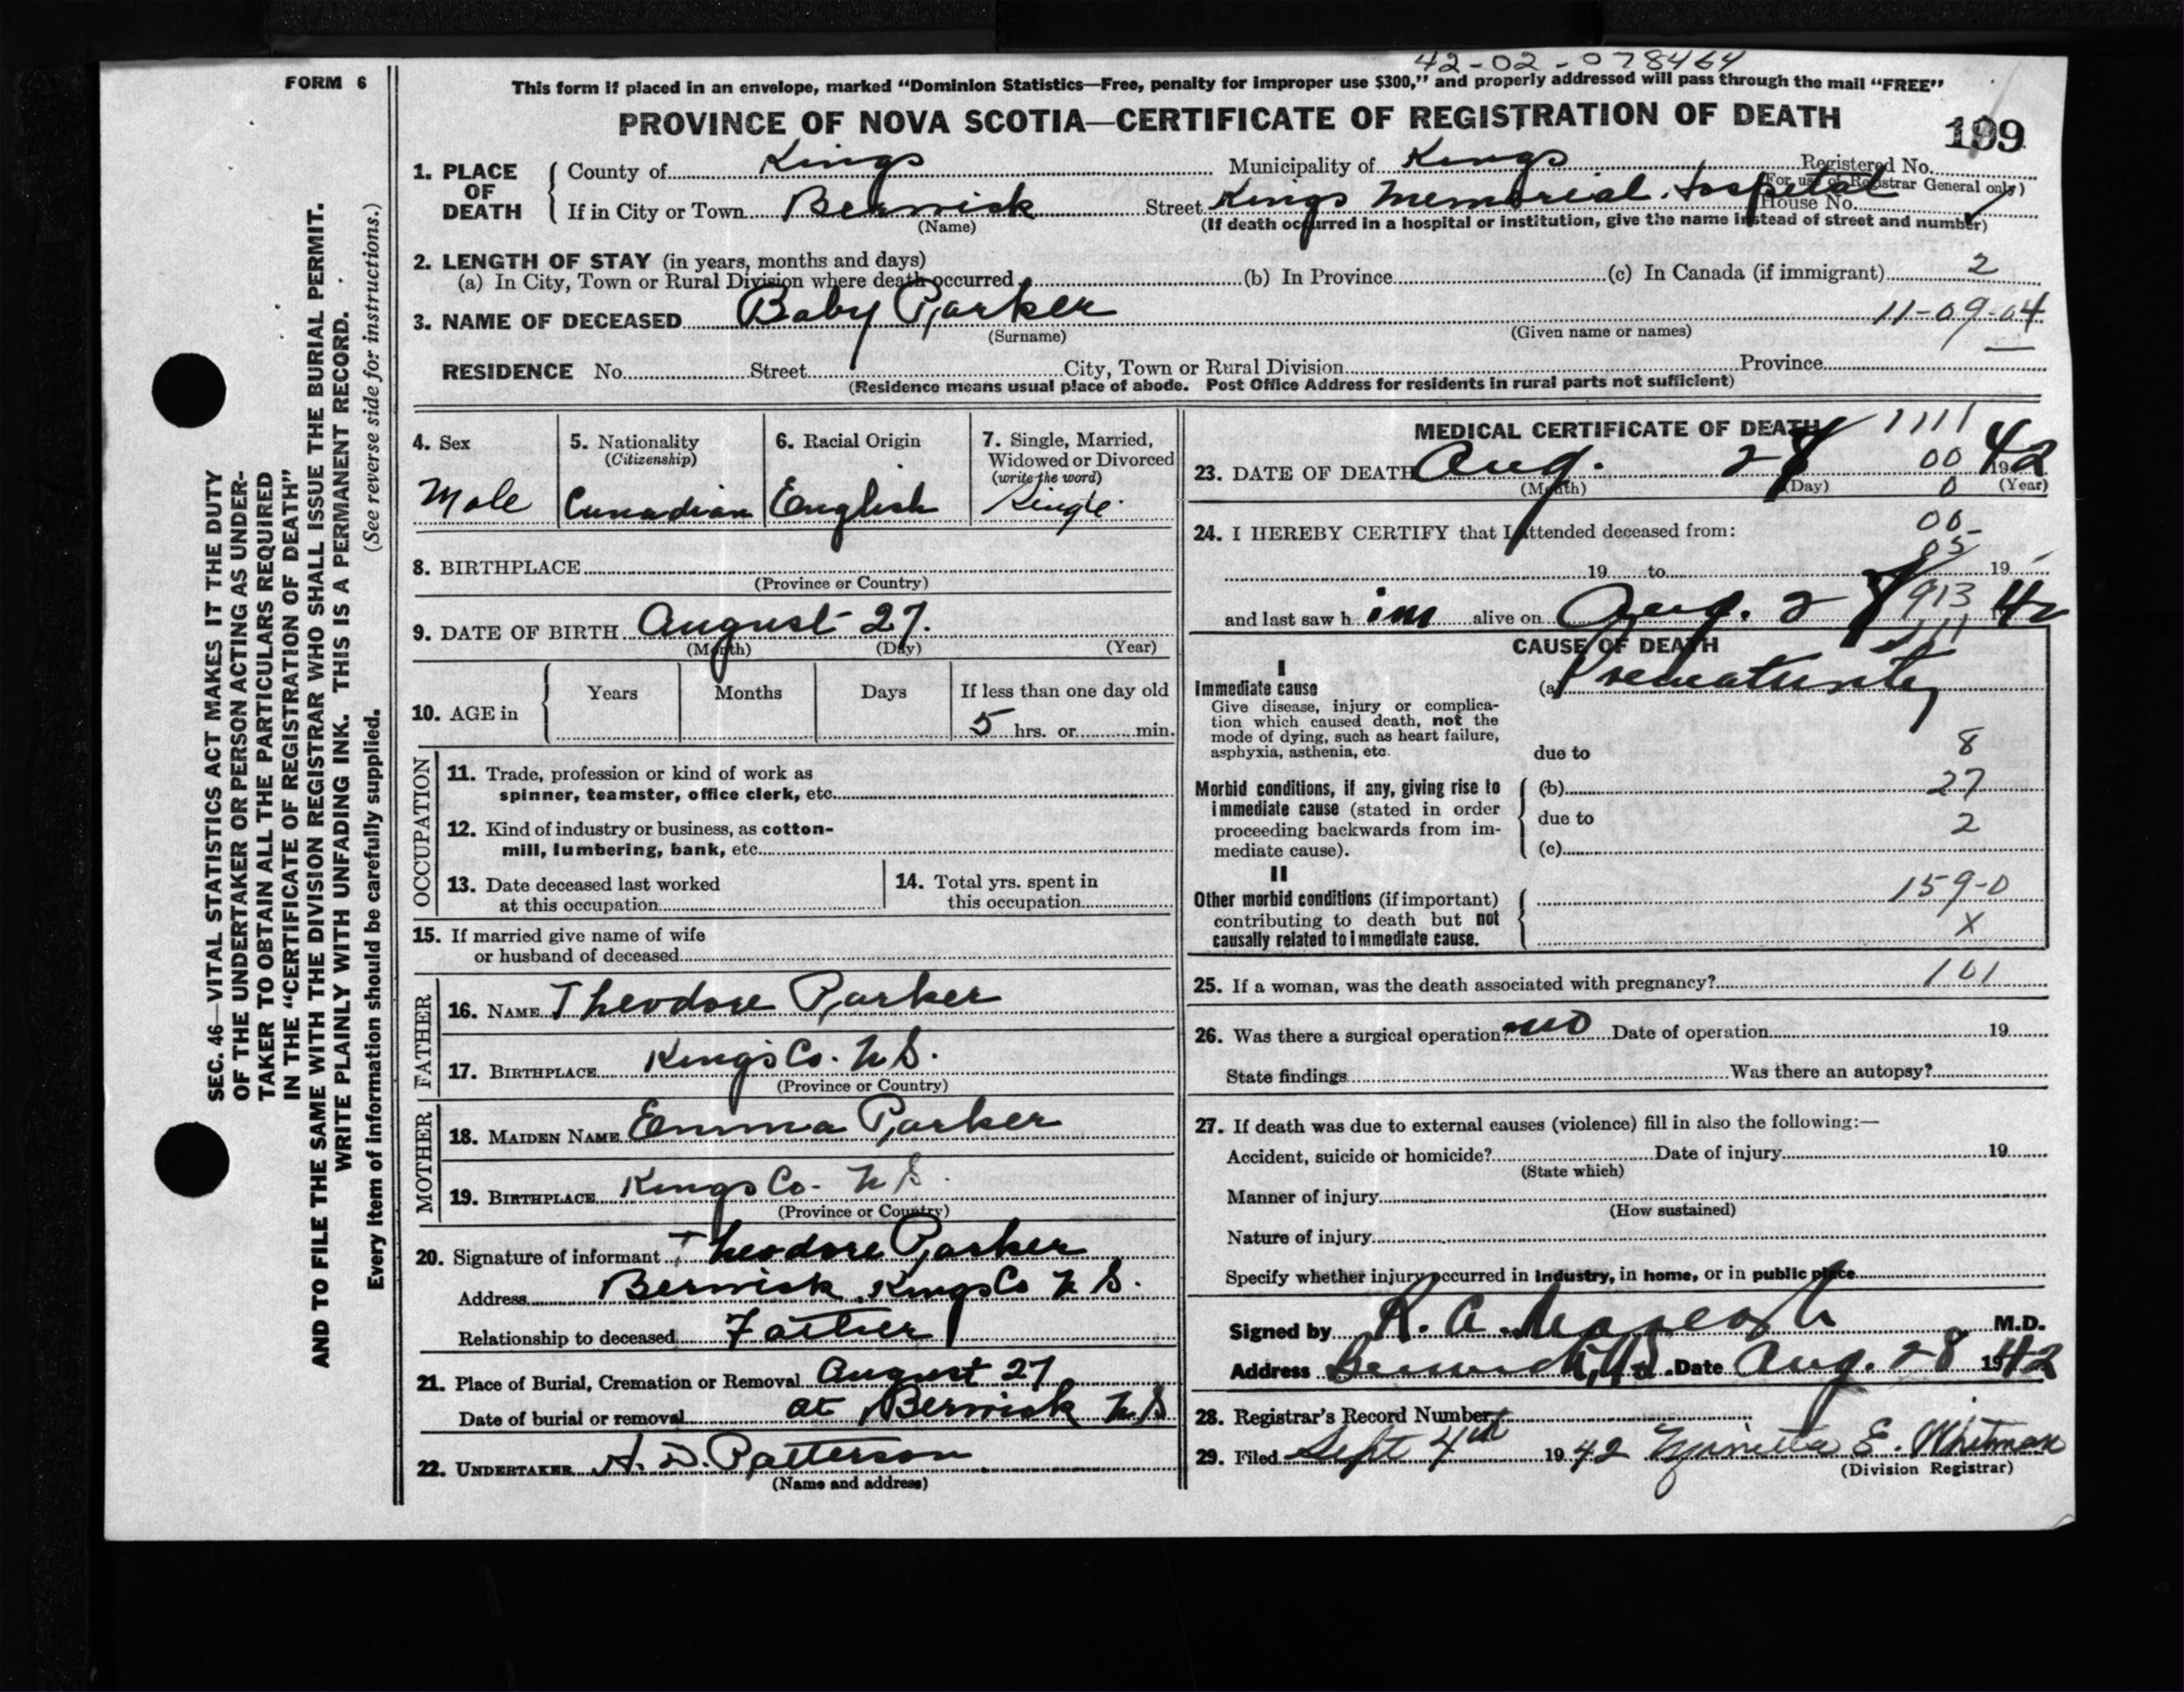 42-02-078464
FORM 6
This form if placed in an envelope, marked "Dominion Statistics—Free, penalty for improper use $300," and properly addressed will pass through the mail "FREE"
PROVINCE OF NOVA SCOTIA—CERTIFICATE OF REGISTRATION OF DEATH
199
1. PLACE OF DEATH County of Kings Municipality of Kings Registered No.
(For use of Registrar General only)
If in City or Town Berwick Street Kings Memorial Hospital House No.
(Name) (If death occurred in a hospital or institution, give the name instead of street and number)
2. LENGTH OF STAY (in years, months and days)
(a) In City, Town or Rural Division where death occurred (b) In Province (c) In Canada (if immigrant) 2
3. NAME OF DECEASED Baby Parker 11-09-04
(Surname) (Given name or names)
RESIDENCE No. Street City, Town or Rural Division Province
(Residence means usual place of abode. Post Office Address for residents in rural parts not sufficient)
4. Sex
Male
5. Nationality
(Citizenship)
Canadian
6. Racial Origin
English
7. Single, Married, Widowed or Divorced
(write the word)
Single
8. BIRTHPLACE
(Province or Country)
9. DATE OF BIRTH August 27.
(Month) (Day) (Year)
10. AGE in Years Months Days If less than one day old
5 hrs. or min.
OCCUPATION
11. Trade, profession or kind of work as
spinner, teamster, office clerk, etc.
12. Kind of industry or business, as cotton-
mill, lumbering, bank, etc.
13. Date deceased last worked
at this occupation
14. Total yrs. spent in
this occupation
15. If married give name of wife
or husband of deceased
FATHER
16. NAME Theodore Parker
17. BIRTHPLACE Kings Co. N S.
(Province or Country)
MOTHER
18. MAIDEN NAME Emma Parker
19. BIRTHPLACE Kings Co- N S.
(Province or Country)
20. Signature of informant Theodore Parker
Address Berwick Kings Co N S.
Relationship to deceased Father
21. Place of Burial, Cremation or Removal August 27
Date of burial or removal at Berwick N S
22. UNDERTAKER A. D. Patterson
(Name and address)
MEDICAL CERTIFICATE OF DEATH 1111
23. DATE OF DEATH Aug. 28 00 1942
(Month) (Day) 0 (Year)
24. I HEREBY CERTIFY that I attended deceased from: 00
05
19 to 19
and last saw h im alive on Aug. 28 913 1942
CAUSE OF DEATH
I
Immediate cause
Give disease, injury or complica-
tion which caused death, not the
mode of dying, such as heart failure,
asphyxia, asthenia, etc.
(a) Prematurity
due to 8
Morbid conditions, if any, giving rise to
immediate cause (stated in order
proceeding backwards from im-
mediate cause).
(b) 27
due to 2
(c)
II
Other morbid conditions (if important)
contributing to death but not
causally related to immediate cause.
159-0
X
25. If a woman, was the death associated with pregnancy? 101
26. Was there a surgical operation? no Date of operation 19
State findings Was there an autopsy?
27. If death was due to external causes (violence) fill in also the following:—
Accident, suicide or homicide? Date of injury 19
(State which)
Manner of injury
(How sustained)
Nature of injury
Specify whether injury occurred in industry, in home, or in public place
Signed by R. A. M.D.
Address Berwick, N.S. Date Aug. 28 1942
28. Registrar's Record Number
29. Filed Sept 4th 1942 E. Whitman
(Division Registrar)
SEC. 46—VITAL STATISTICS ACT MAKES IT THE DUTY
OF THE UNDERTAKER OR PERSON ACTING AS UNDER-
TAKER TO OBTAIN ALL THE PARTICULARS REQUIRED
IN THE "CERTIFICATE OF REGISTRATION OF DEATH"
AND TO FILE THE SAME WITH THE DIVISION REGISTRAR WHO SHALL ISSUE THE BURIAL PERMIT.
WRITE PLAINLY WITH UNFADING INK. THIS IS A PERMANENT RECORD.
Every item of information should be carefully supplied. (See reverse side for instructions.)